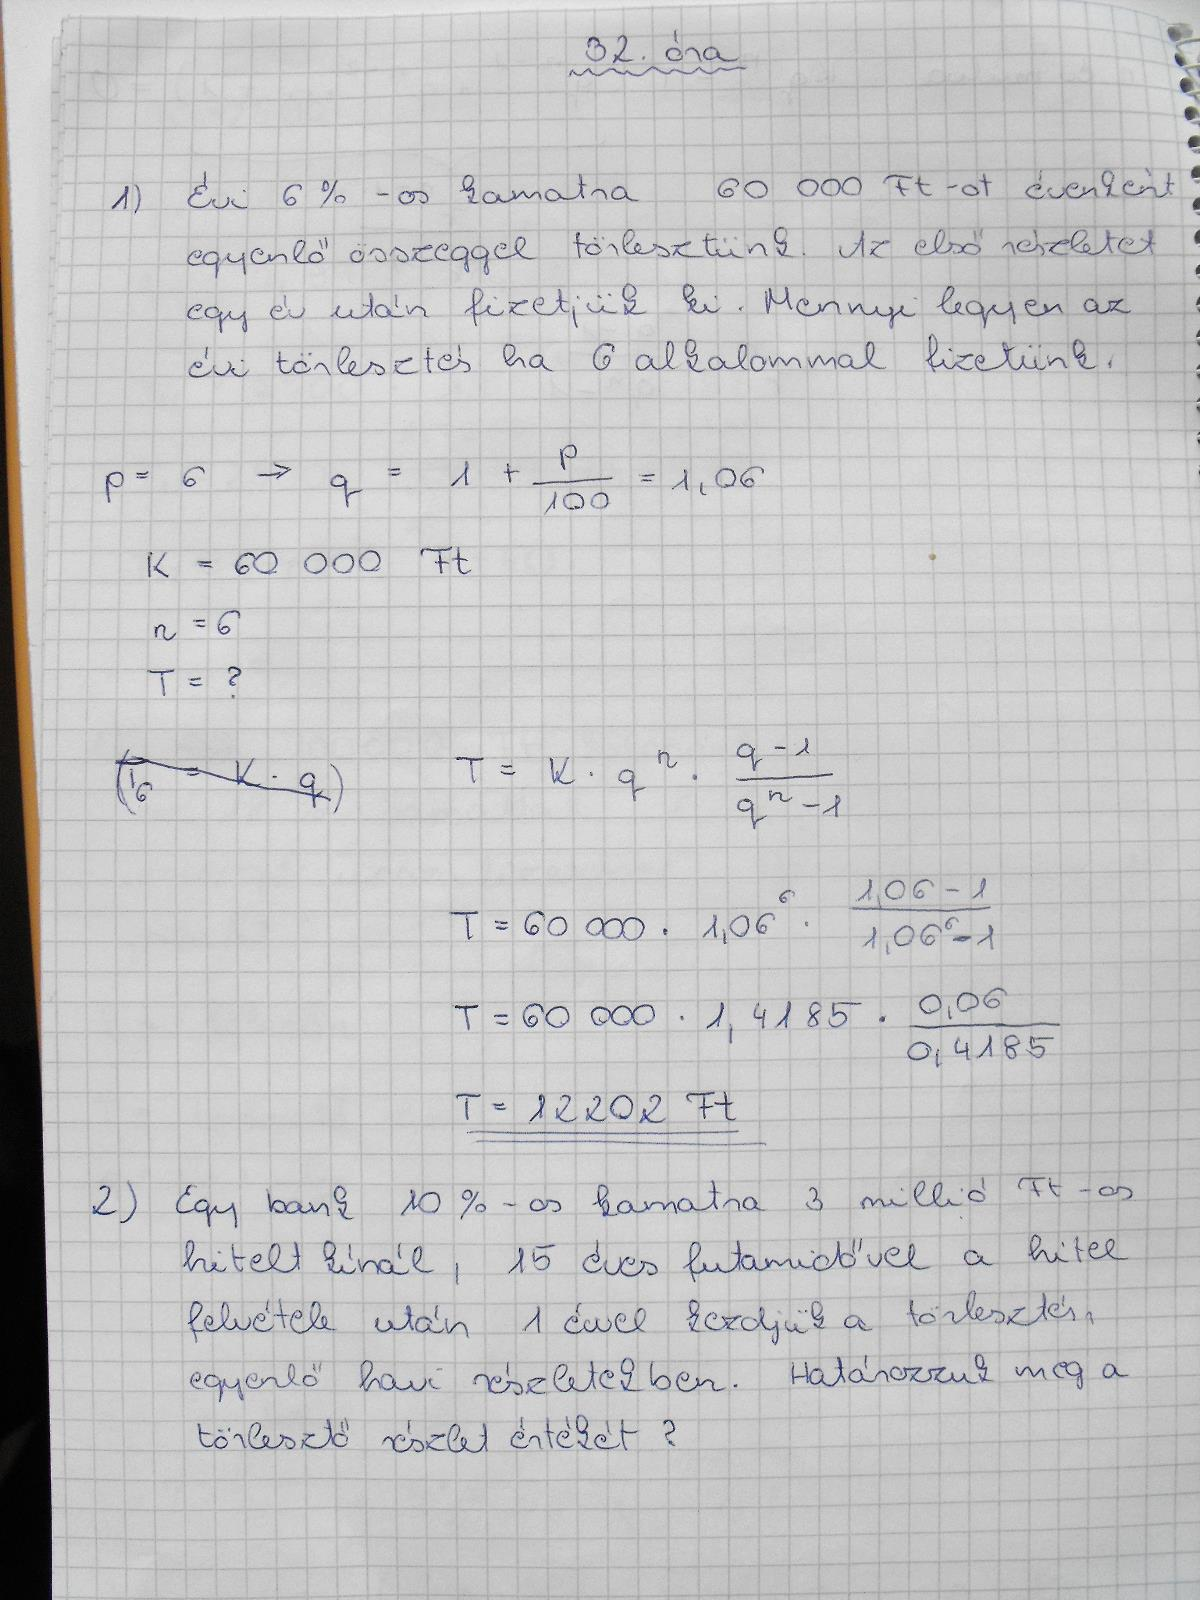 32. óra
1) Évi 6 % -os kamatra 60 000 Ft-ot évenként
egyenlő összeggel törlesztünk. Az első részletet
egy év után fizetjük ki. Mennyi legyen az
évi törlesztés ha 6 alkalommal fizetünk.
p = 6 → q = 1 + p/100 = 1,06
K = 60 000 Ft
n = 6
T = ?
T = K · q^n · (q-1)/(q^n-1)
T = 60 000 · 1,06^6 · (1,06-1)/(1,06^6-1)
T = 60 000 · 1,4185 · 0,06/0,4185
T = 12202 Ft
2) Egy bank 10 %-os kamatra 3 millió Ft-os
hitelt kínál, 15 éves futamidővel a hitel
felvétele után 1 évvel kezdjük a törlesztés,
egyenlő havi részletekben. Határozzuk meg a
törlesztő részlet értékét ?